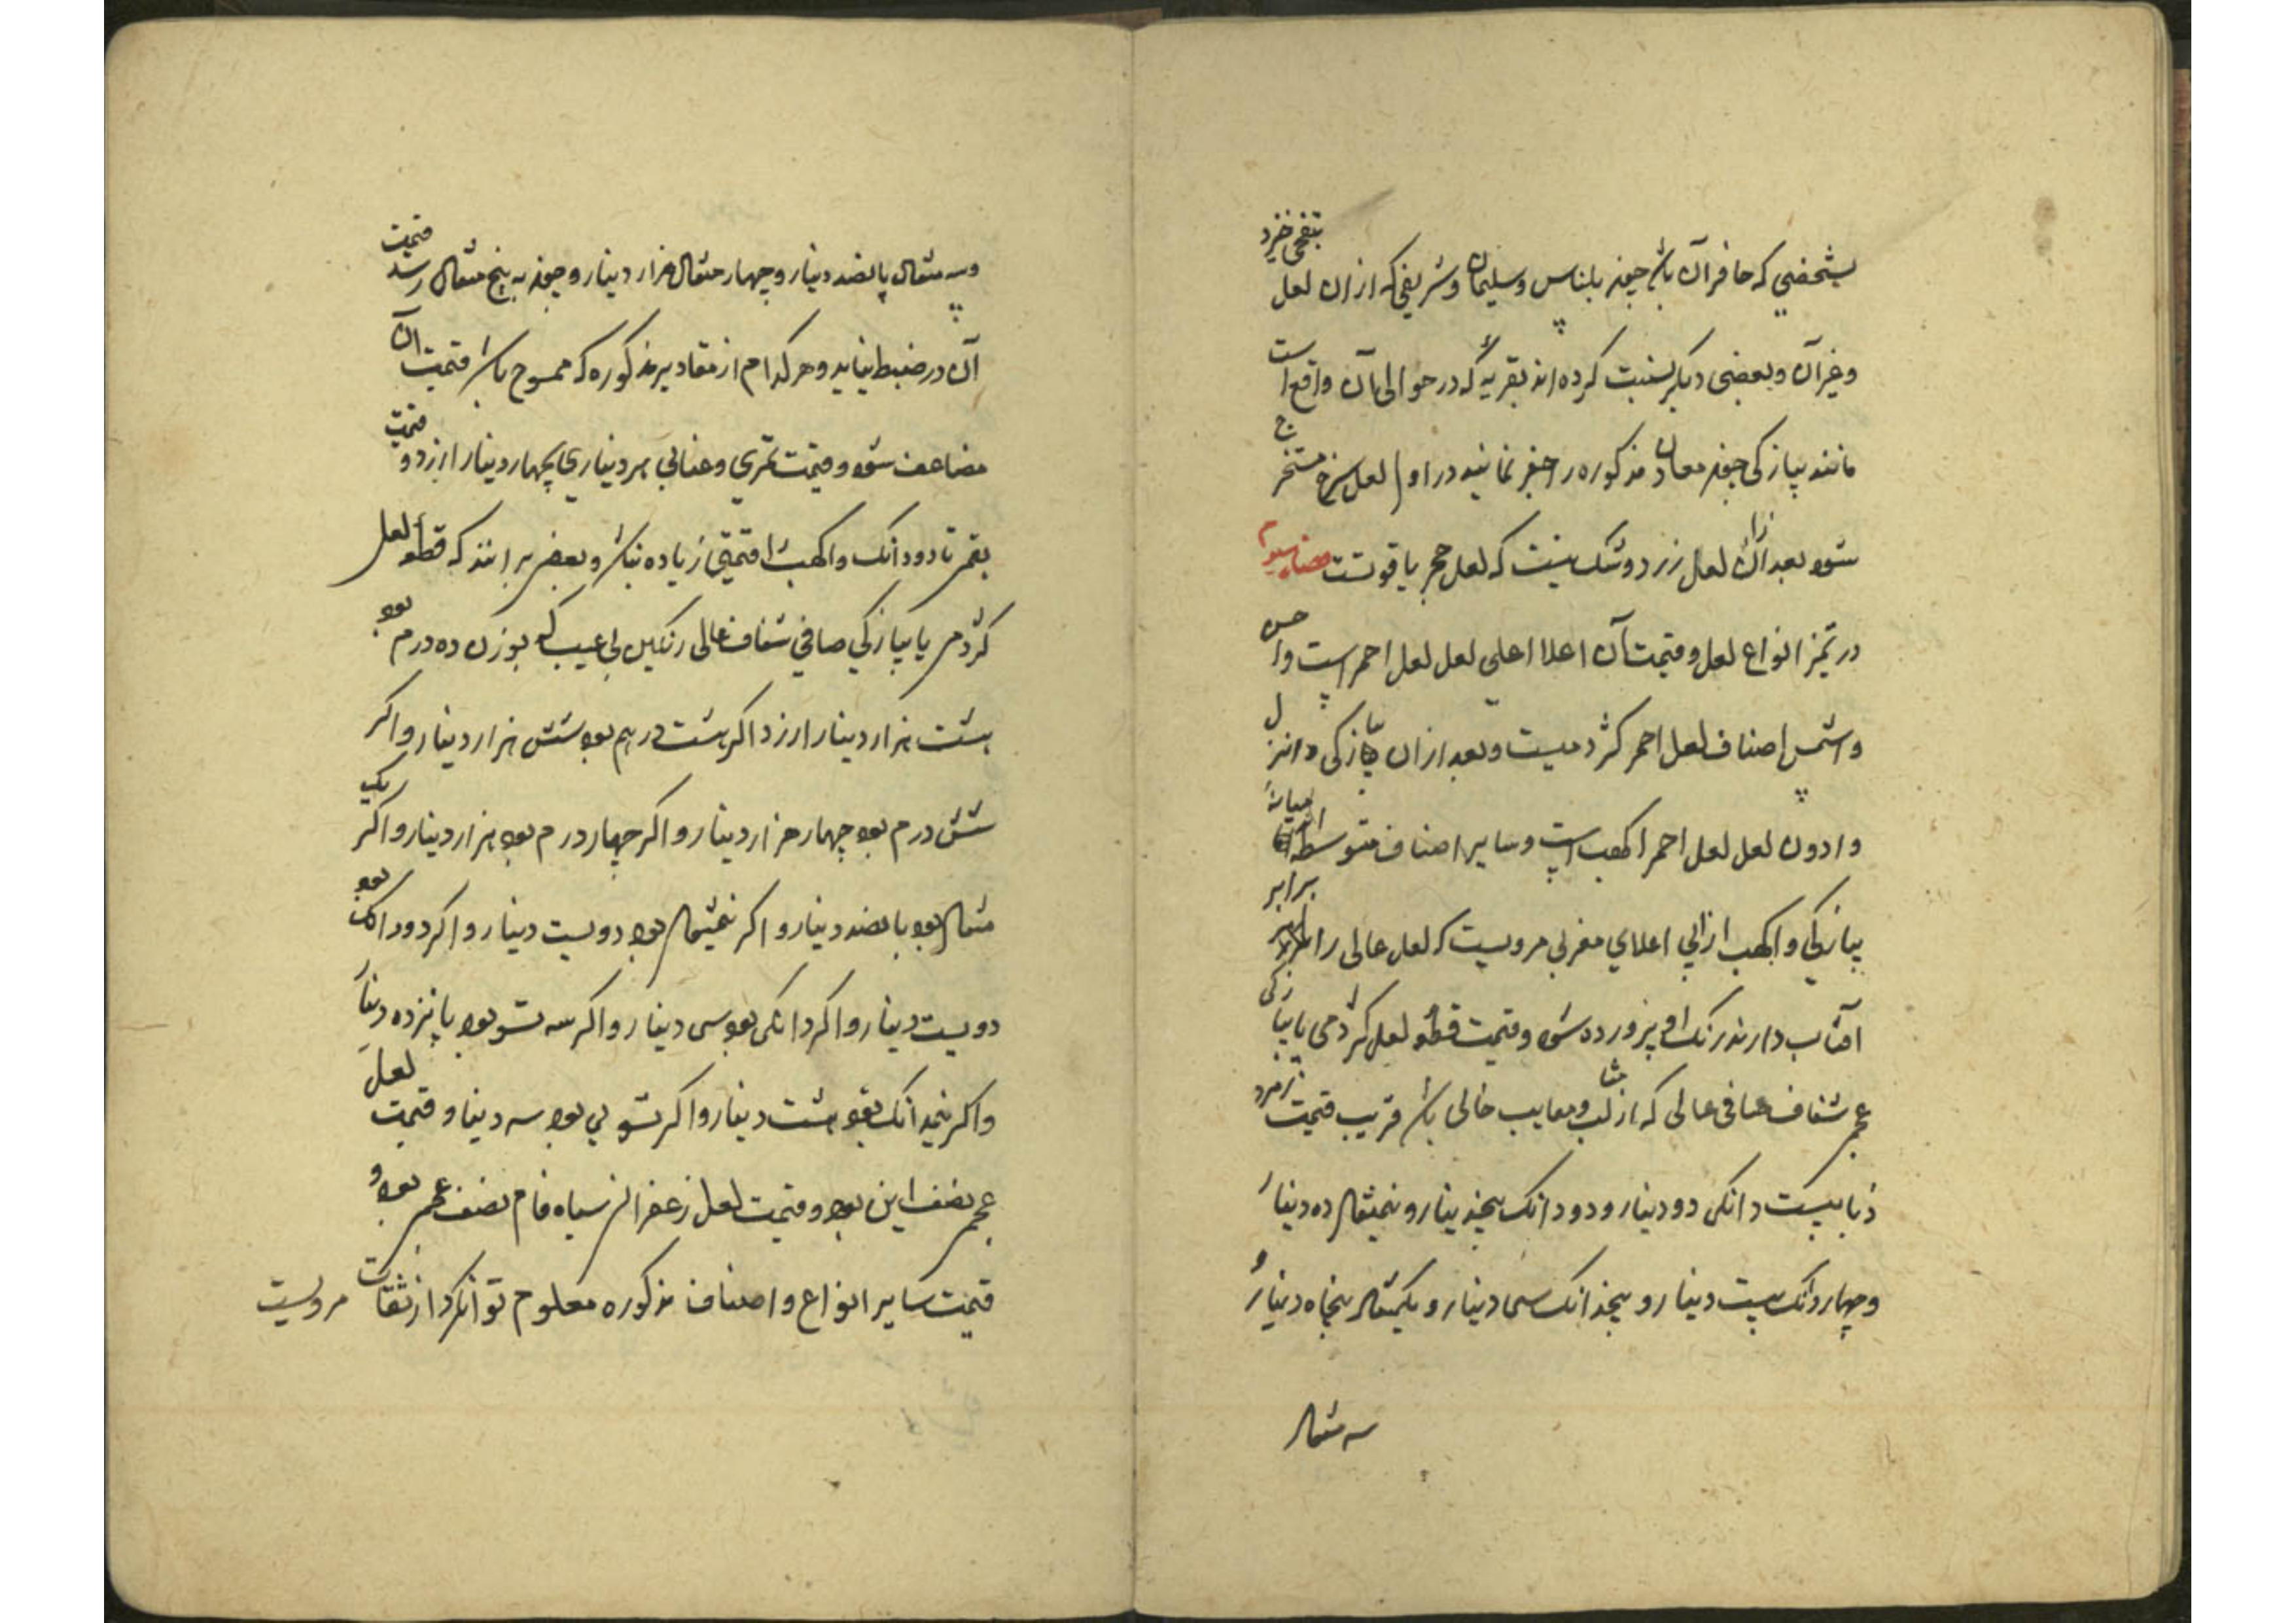 بشخصی که حافر آن باشد چون بلعباس و سلیمان و شریفی که از ان لعل بنفجی خرد
و غیر آن و بعضی دیکر نسبت کرده اند بقریه که در حوالی آن واقع است
مانند پیازکی چون معادن مذکوره را حفر نمایند در اول لعل سرخ مستخرج
شود بعد از آن لعل زرد و شک نیست که لعل حجر یاقوتست
در تمیز انواع لعل و قیمت آن اعلا اعلی لعل لعل احمر است و احسن
و اشمل اصناف لعل احمر کژدمیست و بعد از ان پیازکی و انزل
و ادون لعل لعل احمر اکهب است و سایر اصناف متوسطه میان
پیازکی و اکهب از ابی اعلای مغربی مرویست که لعل عالی را برابر
افتاب دارند رنک او پرورده شود و قیمت قطعه لعل کژدمی یا پیازکی
شفاف صافی عالی که از ثقب و معایب خالی باشد قریب قیمت زمرد
ذبابیست دانکی دو دینار و دو دانک پنج دینار و نیمثقال ده دینار
و چهار دانک بیست دینار و پنج دانک سی دینار و یکمثقال پنجاه دینار و
سه مثقال
و سه مثقال پانصد دینار و چهار مثقال هزار دینار و چون به پنج مثقال رسد قیمت
آن در ضبط نیاید و هر کدام از مقادیر مذکوره که ممسوح باشد قیمت آن
مضاعف شود و قیمت تمری و عنابی هر دیناری بچهار دینار ارزد و قیمت
بقمی تا دو دانک و اکهب را قیمتی زیاده نباشد و بعضی برانند که قطعه لعل
کژدمی یا پیازکی صافی شفاف عالی رنکین بی عیب که بوزن ده درم بود
هشت هزار دینار ارزد اکر هشت درهم بود شش هزار دینار و اکر
شش درم بود چهار هزار دینار و اکر چهار درم بود هزار دینار و اکر یک
مثقال بود پانصد دینار و اکر نیمثقال بود دویست دینار و اکر دو دانک بود
دویست دینار و اکر دانکی بود سی دینار و اکر سه تسو بود پانزده دینار
و اکر نیمدانک بود هشت دینار و اکر تسوی بود سه دینار و قیمت لعل
نصف این بود و قیمت لعل زعفرانی سیاه فام نصف بود و
قیمت سایر انواع و اصناف مذکوره معلوم توان کرد از ثقات مرویست